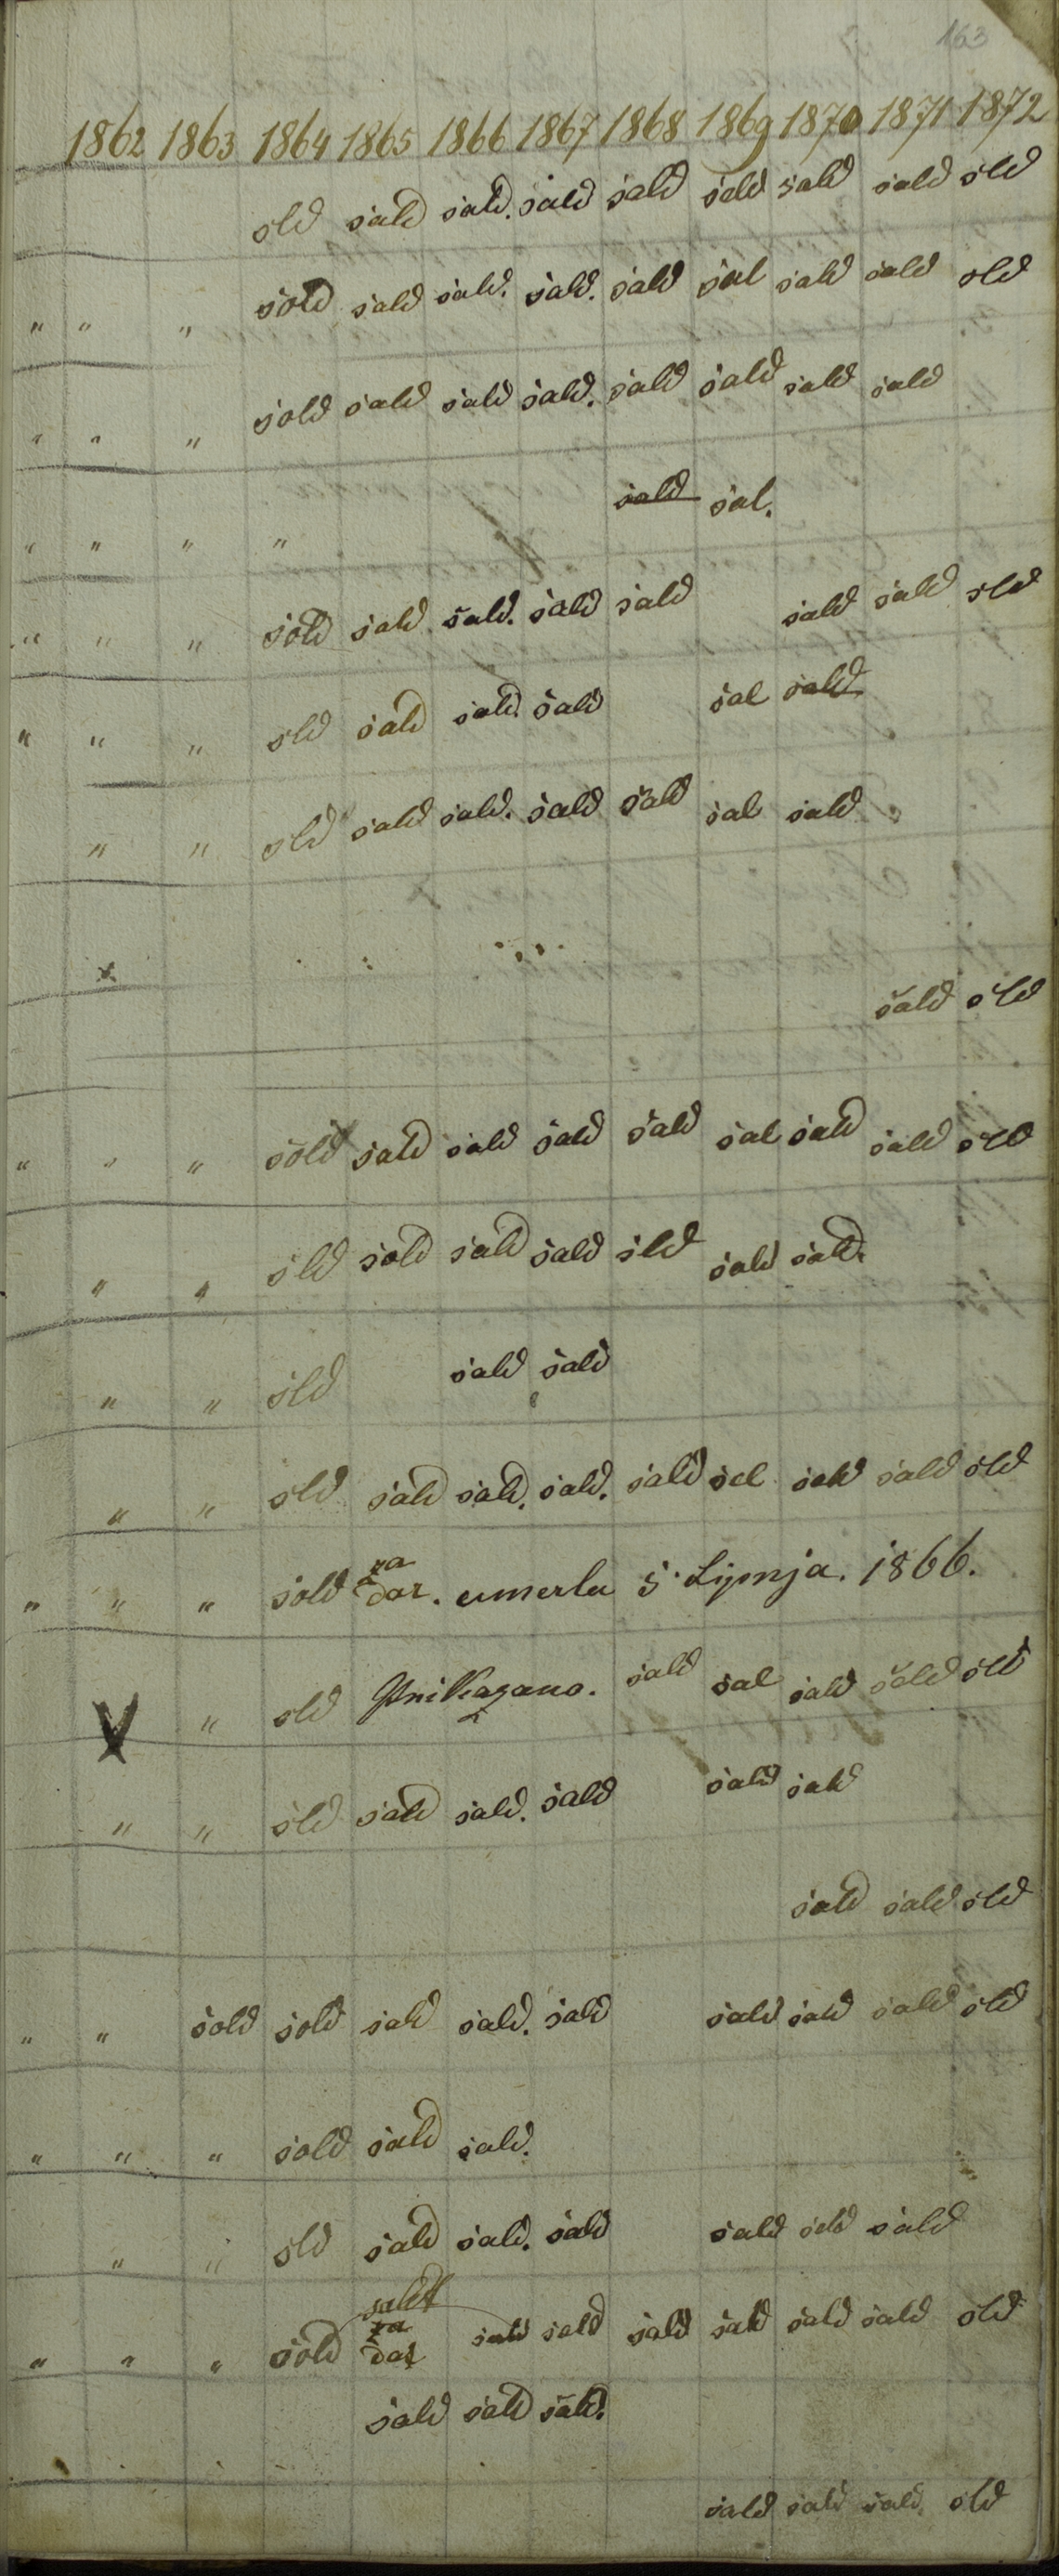 163
1862 1863 1864 1865 1866 1867 1868 1869 1870 1871 1872
sld sald sald. sald sald sald sald sald sld
" " " sold sald sald. sald. sald sal sald sald sld
" " " sold sald sald sald. sald sald sald sald
" " " " sald sal.
" " " sold sald sald. sald sald sald sald sld
" " " sld sald sald. sald sal sald
" " sld sald sald. sald sald sal sald
x
sald sld
" " " sold sald sald sald sald sal sald sald sld
" " sld sold sald sald sld sald sald.
" " sld sald sald
" " sld sald sald. sald. sald sal sald sald sld
" " " sold za dar. umerla 5. Lipnja. 1866.
V " sld Prikazano. sald sal sald sald sld
" " sld sald sald. sald sald sald
sald sald sld
" " sold sold sald sald. sald sald sald sald sld
" " " sold sald sald.
" " sld sald sald. sald sald sald sald
sald
" " " sold za dar sald sald sald sald sald sald sld
sald sald sald.
sald sald sald. sld